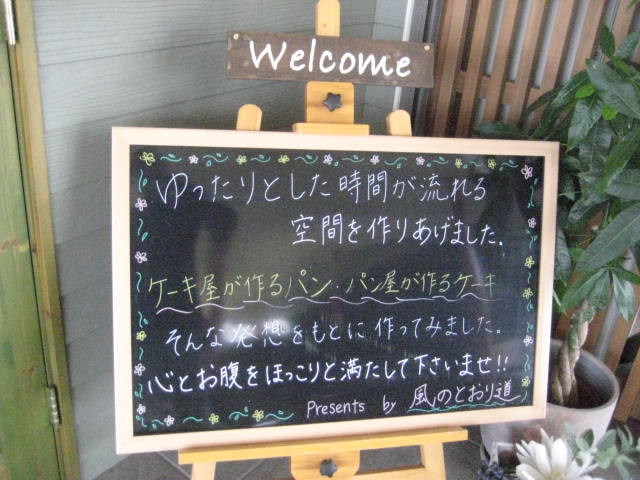 Welcome
ゆったりとした時間が流れる
空間を作りあげました。
ケーキ屋が作るパン・パン屋が作るケーキ
そんな発想をもとに作ってみました。
心とお腹をほっこりと満たして下さいませ!!
Presents by 風のとおり道